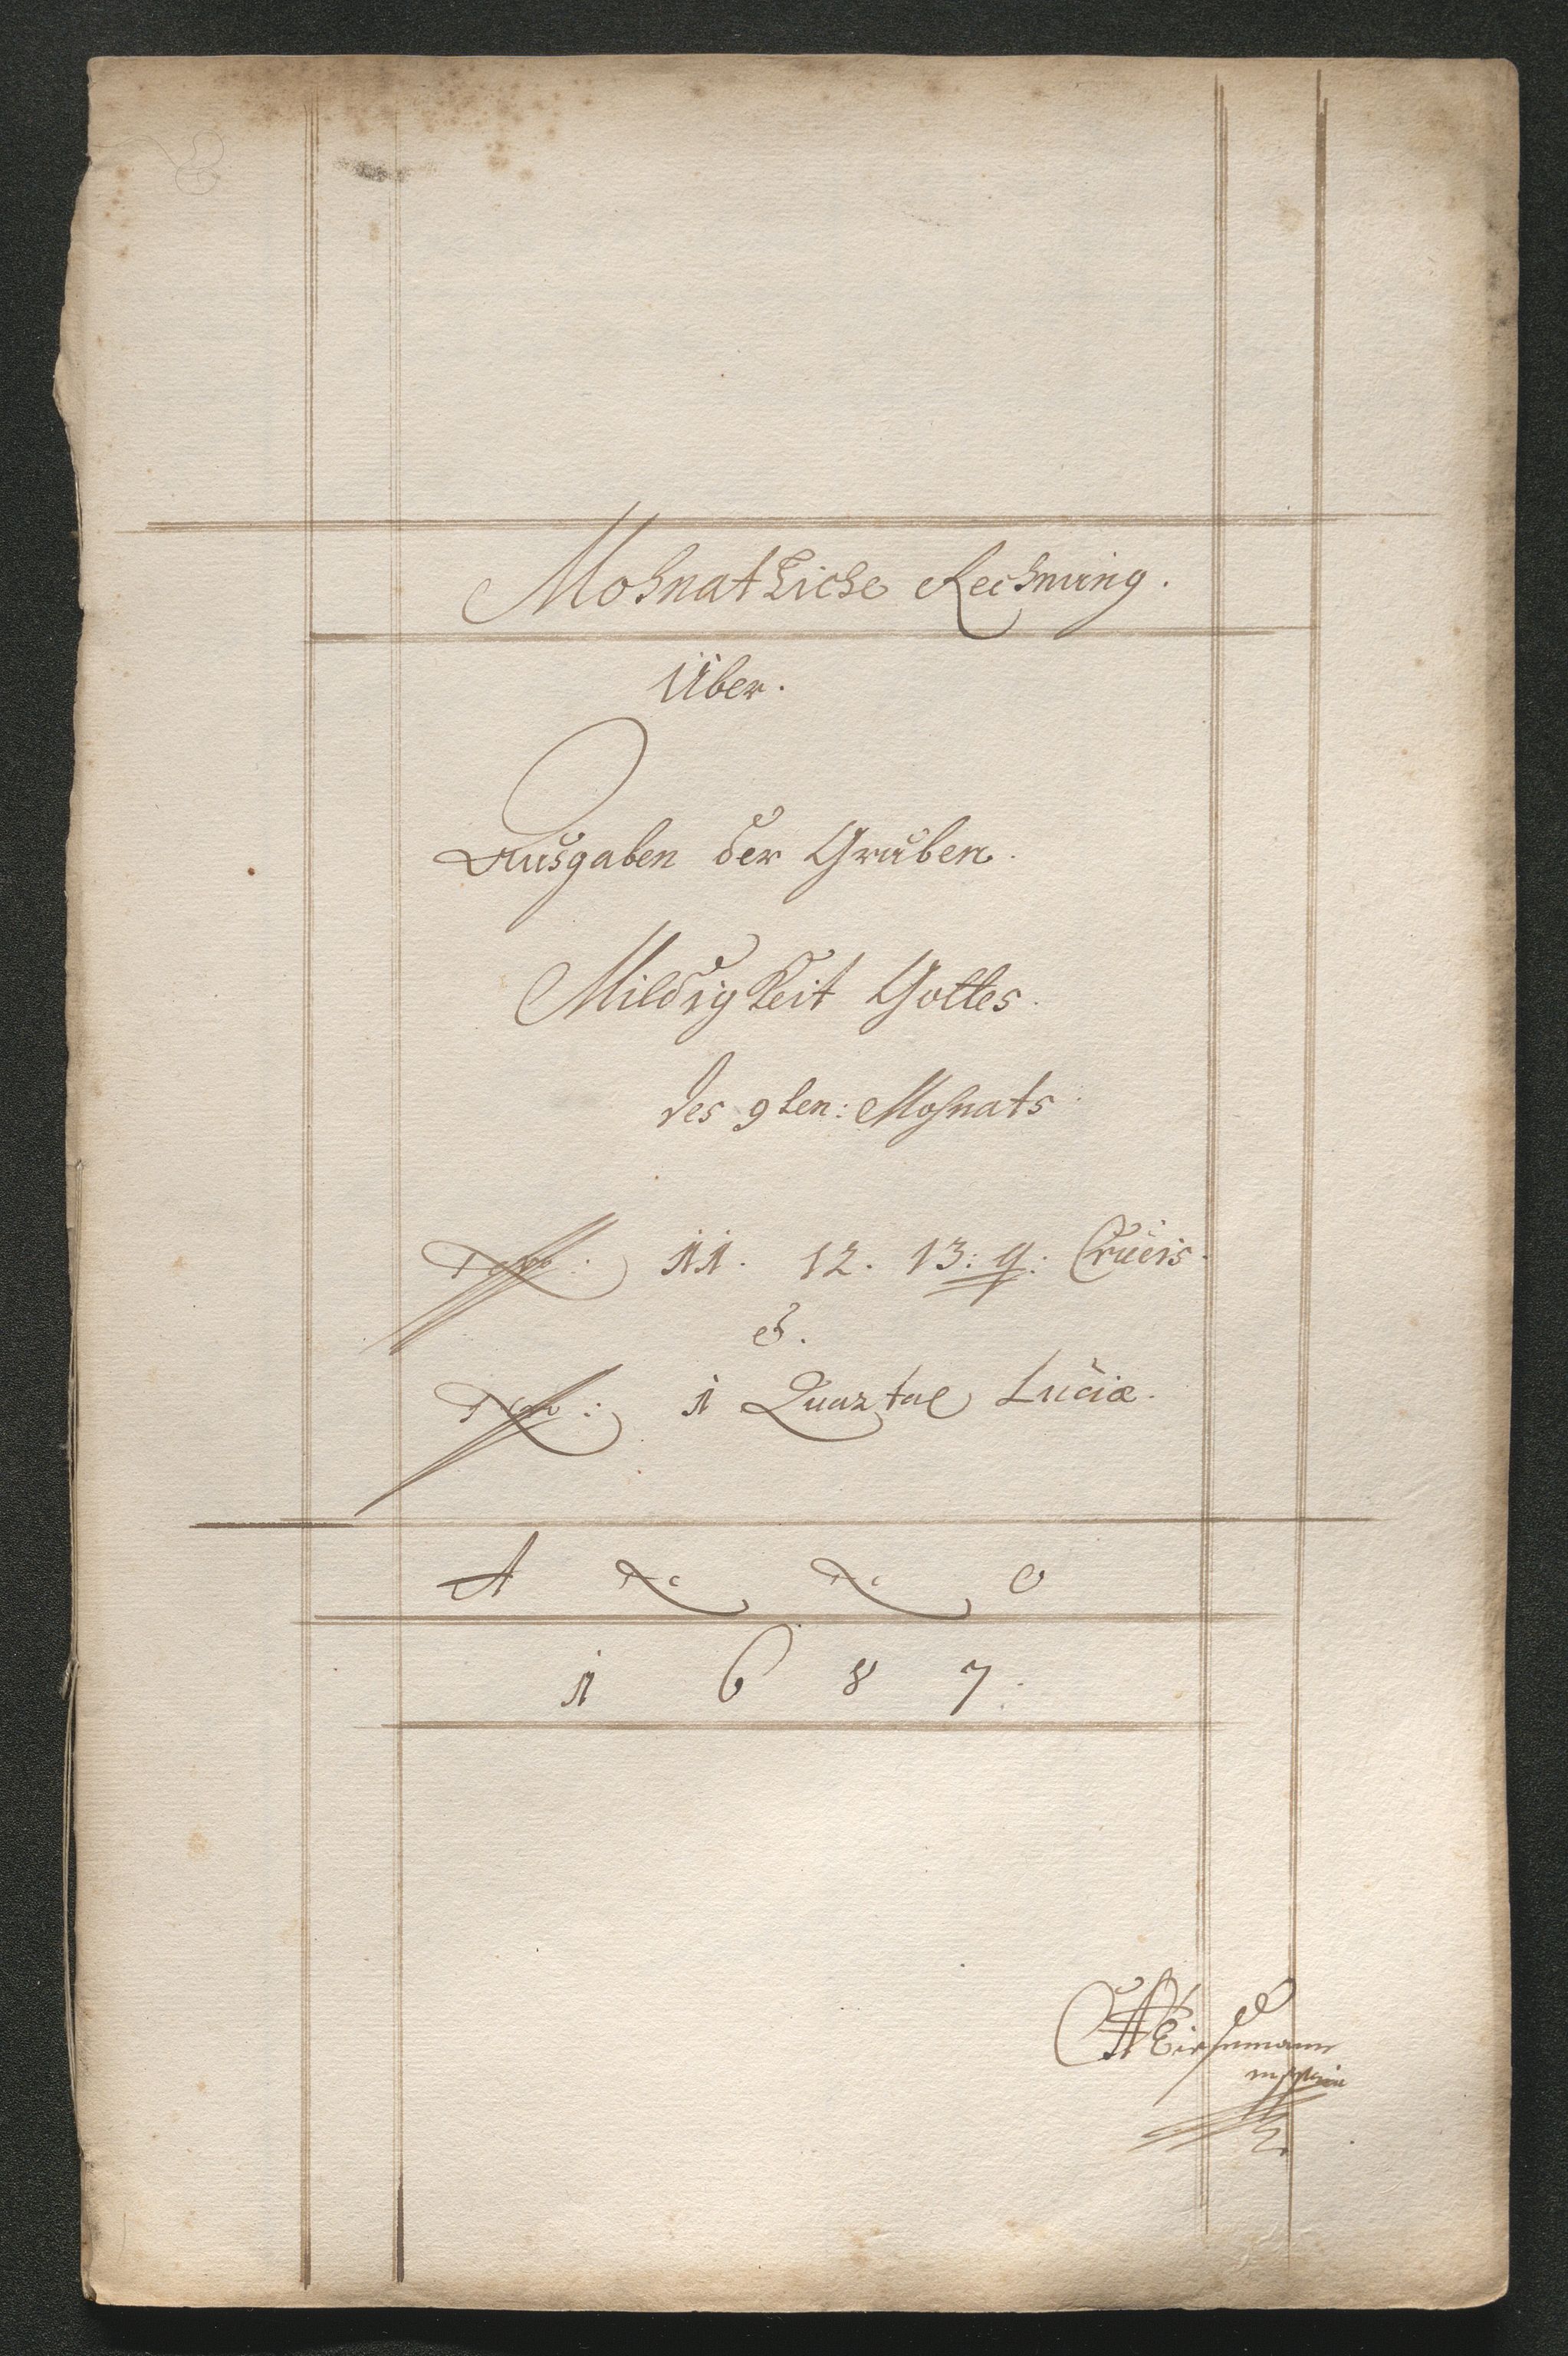 Mohnatliche Rechnung.
Über.
Ausgaben der Gruben.
Mildigkeit Gottes.
des 9ten: Mohnats
11. 12. 13: q: Crucis.
&.
1 Quartal Luciæ.
A N N O
1 6 8 7.